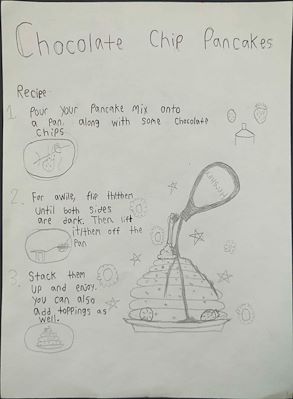 Chocolate Chip Pancakes
Recipe
1. Pour your Pancake Mix onto
a Pan, along with some Chocolate
Chips.
2. For awile, flip it/them
Until both sides
are dark. Then lift
it/them off the
Pan
3. Stack them
up and enjoy.
you can also
add toppings as
well.